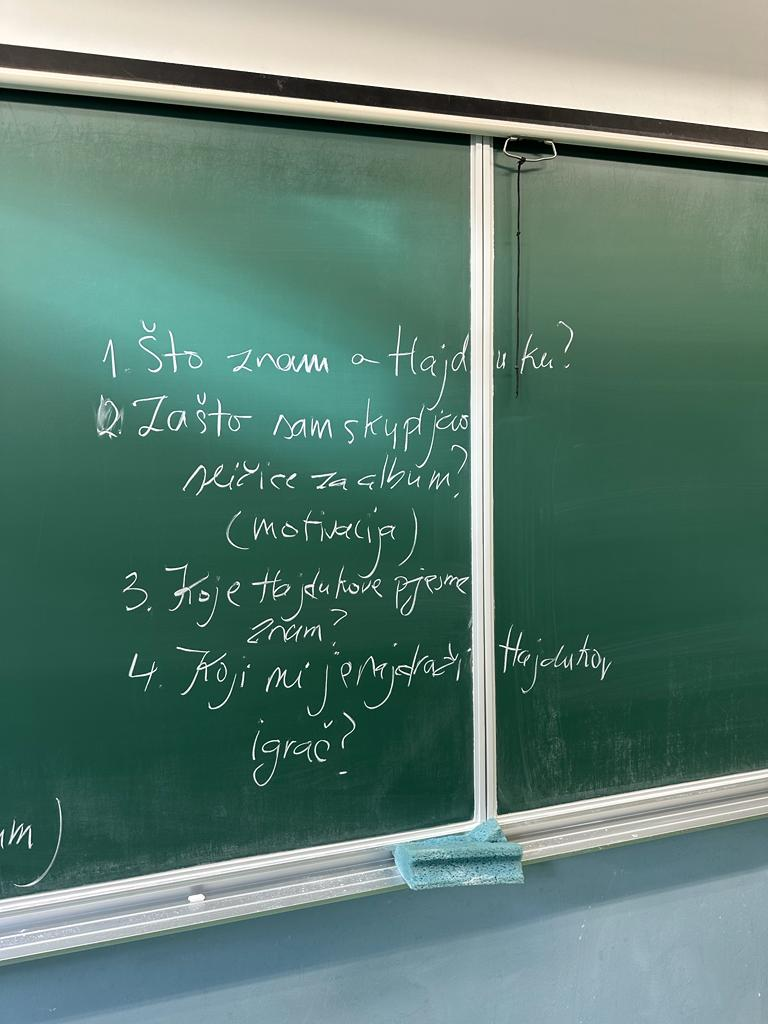 1. Što znam o Hajduku?
2. Zašto sam skupljao
sličice za album?
(motivacija)
3. Koje Hajdukove pjesme
znam?
4. Koji mi je najdraži Hajdukov
igrač?
um)